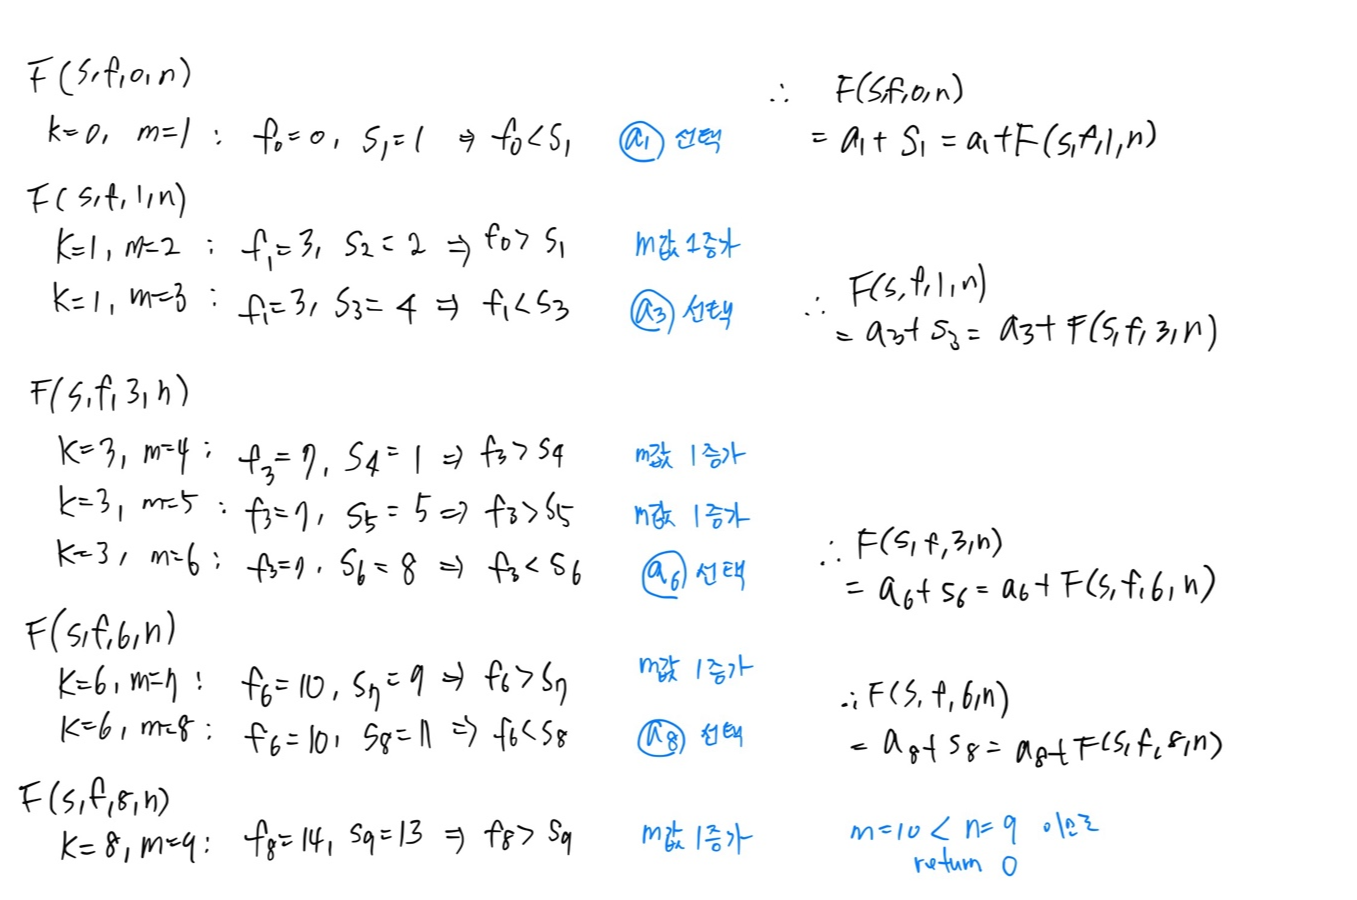 F(s,f,0,n)
k=0, m=1 : f₀=0, S₁=1 ⇒ f₀<S₁ a₁ 선택
∴ F(s,f,0,n)
= a₁+S₁ = a₁+F(s,f,1,n)
F(s,f,1,n)
k=1, m=2 : f₁=3, S₂=2 ⇒ f₀>S₁ m값 1증가
k=1, m=3 : f₁=3, S₃=4 ⇒ f₁<S₃ a₃ 선택
∴ F(s,f,1,n)
= a₃+S₃ = a₃+F(s,f,3,n)
F(s,f,3,n)
k=3, m=4 : f₃=7, S₄=1 ⇒ f₃>S₄ m값 1증가
k=3, m=5 : f₃=7, S₅=5 ⇒ f₃>S₅ m값 1증가
k=3, m=6 : f₃=7, S₆=8 ⇒ f₃<S₆ a₆ 선택
∴ F(s,f,3,n)
= a₆+S₆ = a₆+F(s,f,6,n)
F(s,f,6,n)
k=6, m=7 : f₆=10, S₇=9 ⇒ f₆>S₇ m값 1증가
k=6, m=8 : f₆=10, S₈=11 ⇒ f₆<S₈ a₈ 선택
∴ F(s,f,6,n)
= a₈+S₈ = a₈+F(s,f,8,n)
F(s,f,8,n)
k=8, m=9 : f₈=14, S₉=13 ⇒ f₈>S₉ m값 1증가
m=10 < n=9 이므로
return 0